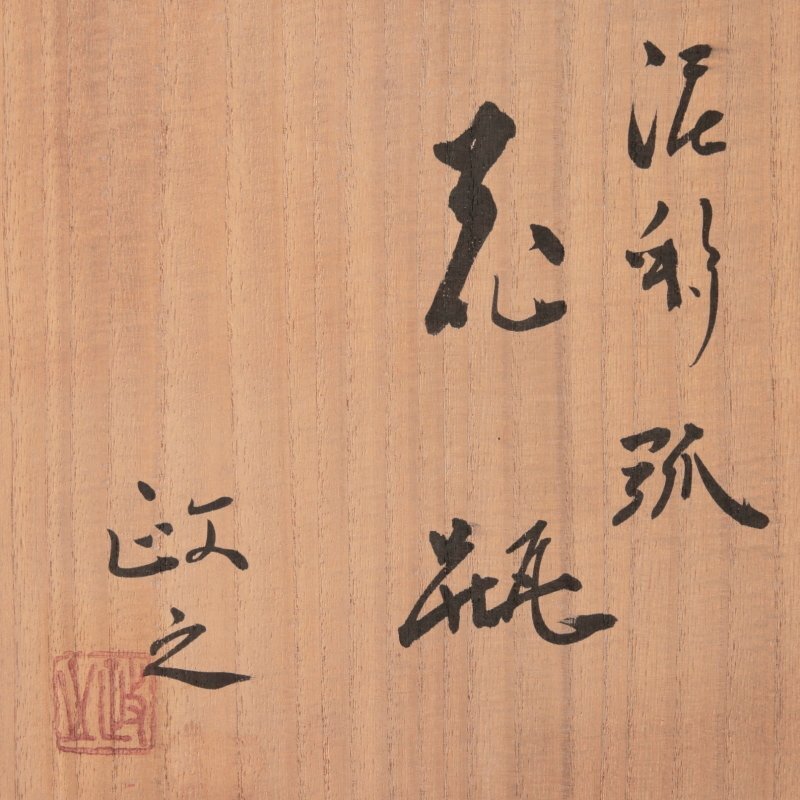 泥彩弧
花瓶
政之